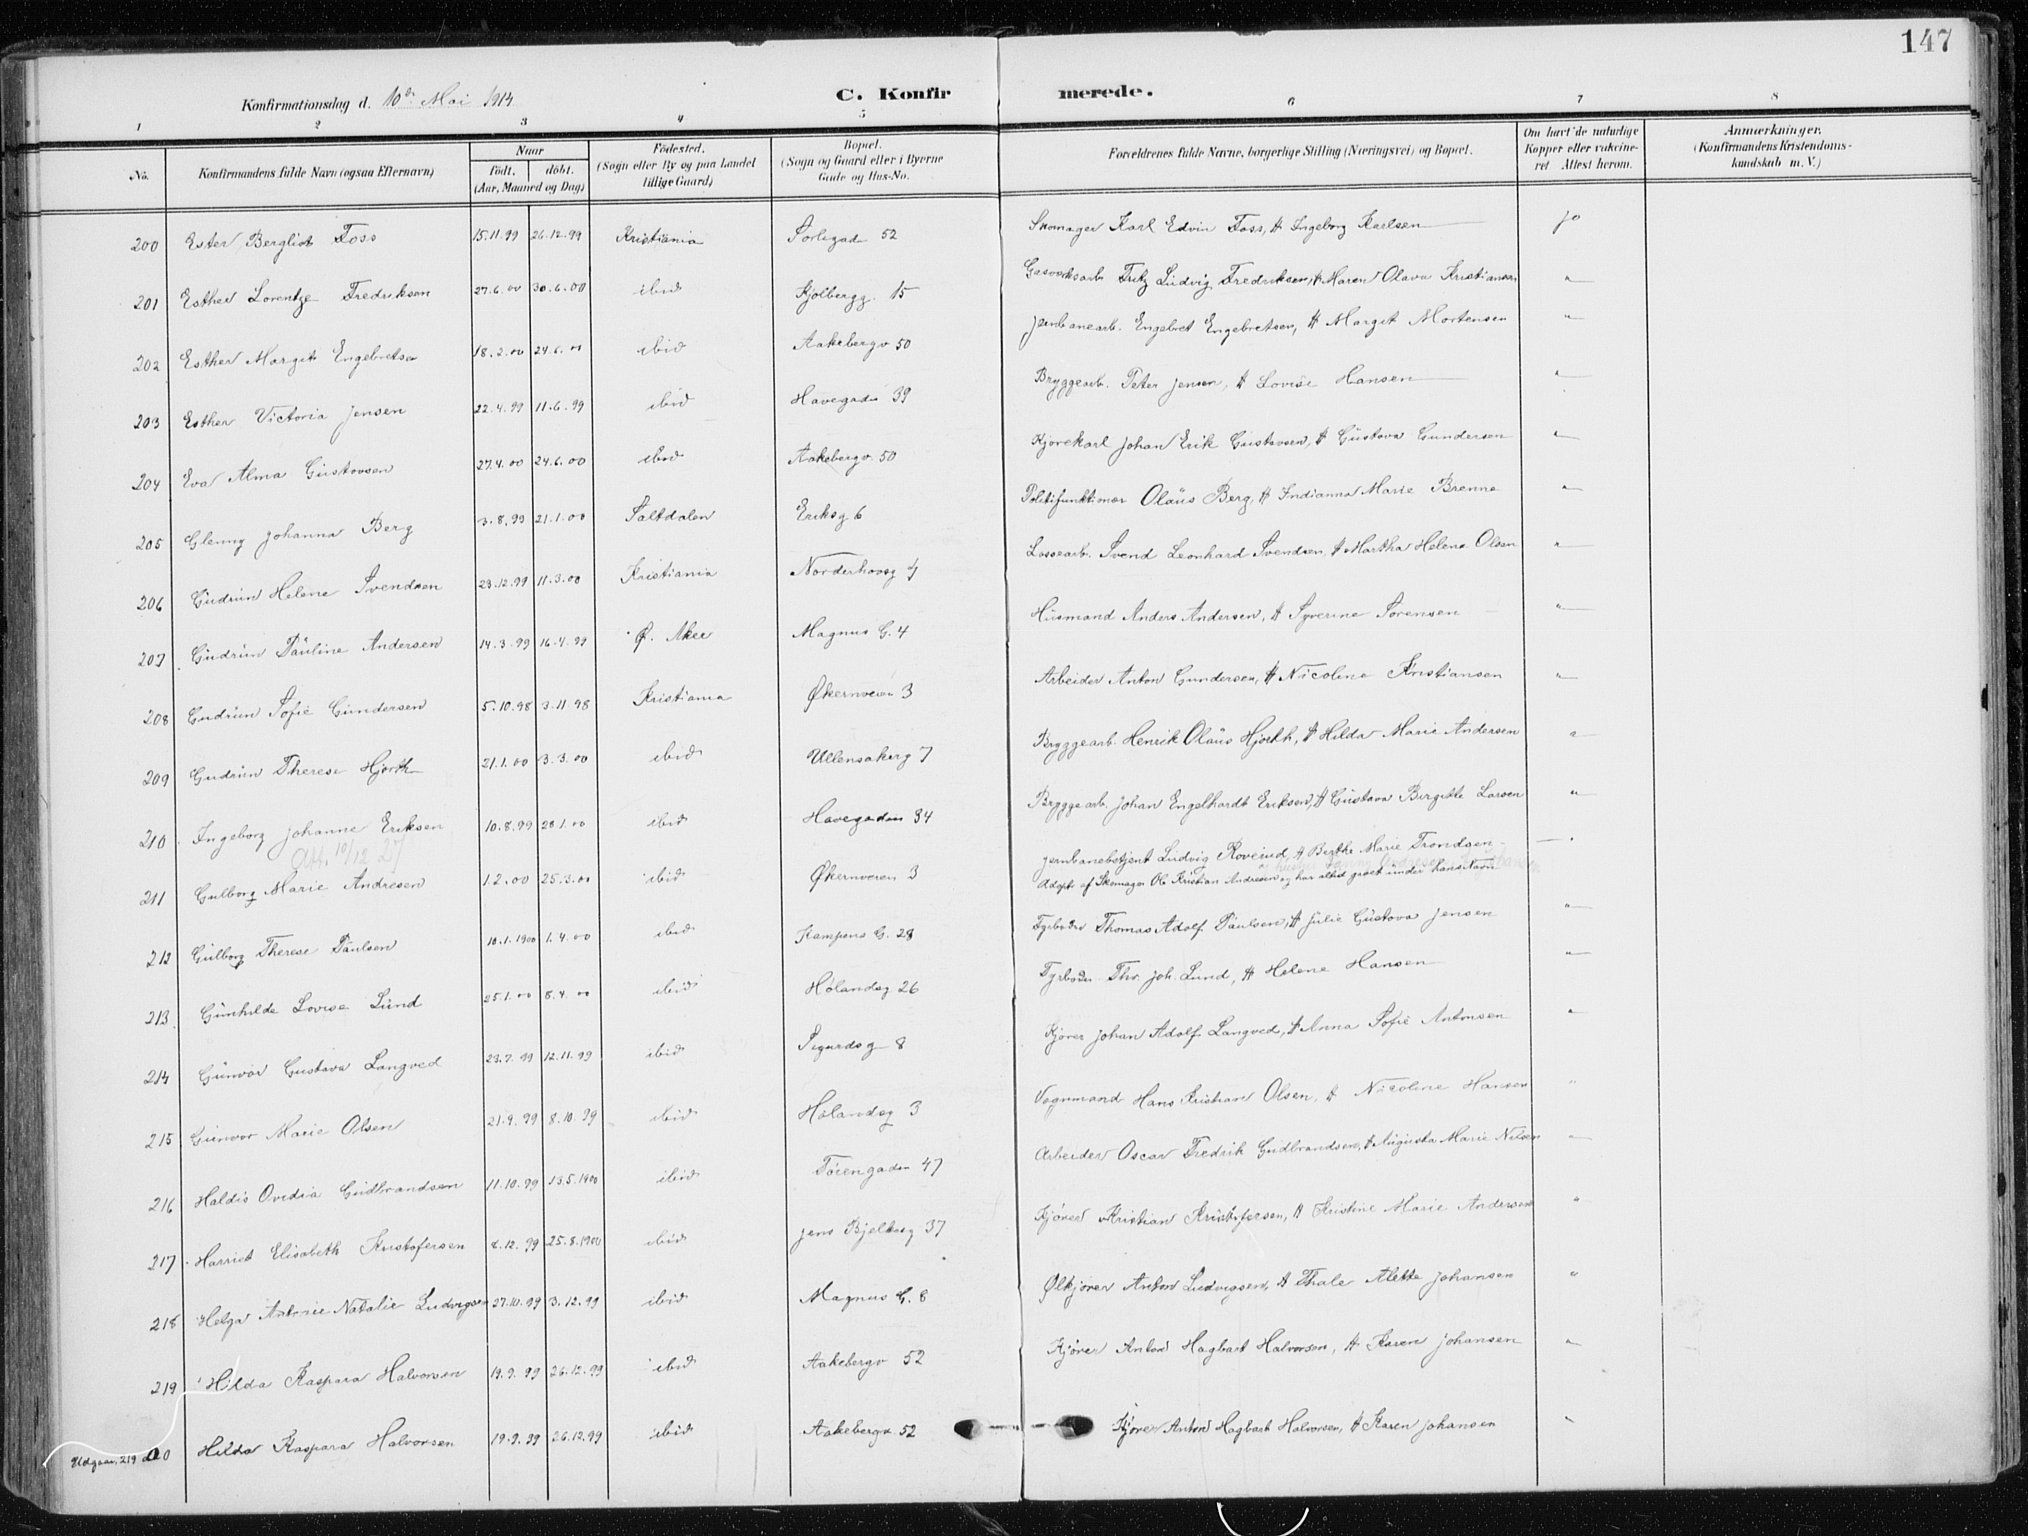 147
Konfirmationsdag d. 10de Mai 1914
C. Konfirmerede.
1 2 3 4 5 6 7 8
No.
Konfirmandens fulde Navn (ogsaa Efternavn)
Naar
födt, döbt.
(Aar, Maaned og Dag)
Födested.
(Sogn eller By og paa Landet
tillige Gaard)
Bopæl.
(Sogn og Gaard eller i Byerne
Gade og Hus-No.
Forældrenes fulde Navne, borgerlige Stilling (Næringsvei) og Bopæl.
Om havt de naturlige
Kopper eller vakcine-
ret Attest herom.
Anmærkninger.
(Konfirmandens Kristendoms-
kundskab m. V.)
200 Ester Bergliot Foss 15.11.99 26.12.99 Kristiania Sorligade 52 Skomager Karl Edvin Foss, H Ingeborg Karlsen jo
201 Esther Lorentze Fredriksen 27.6.00 30.6.00 ibid Kjølbergg. 15 Gasværksarb. Fritz Ludvig Fredriksen, H Maren Olava Kristiansen "
202 Esther Margit Engebretsen 18.2.00 24.6.00 ibid Aakebergv 50 Jernbanearb. Engebret Engebretsen, H Margit Mortensen "
203 Esther Victoria Jensen 22.4.99 11.6.99 ibid Havegaden 39 Bryggearb. Peter Jensen, H Lovise Hansen "
204 Eva Alma Gustavsen 27.4.00 24.6.00 ibid Aakebergv. 50 Kjørekarl Johan Erik Gustavsen, H Gustava Gundersen "
205 Glenny Johanna Berg 3.8.99 21.1.00 Saltdalen Eriksg 6 Politifunktionær Olaus Berg, H Indianna Marie Brenne "
206 Gudrun Helene Svendsen 23.12.99 11.3.00 Kristiania Norderhovsg 4 Lossearb. Svend Leonhard Svendsen, H Martha Helene Olsen "
207 Gudrun Pauline Andersen 14.3.99 16.4.99 Ø. Aker Magnus G. 4 Husmand Anders Andersen, H Syverine Sørensen "
208 Gudrun Sofie Gundersen 5.10.98 3.11.98 Kristiania Økernveien 3 Arbeider Anton Gundersen, H Nicoline Kristiansen "
209 Gudrun Therese Hjorth 21.1.00 3.3.00 ibid Ullensakerg 7 Bryggearb. Henrik Olaus Hjorth, H Hilda Marie Andersen "
210 Ingeborg Johanne Eriksen 10.8.99 28.1.00 ibid Havegaden 34 Bryggearb. Johan Engelhardt Eriksen, H Gustava Birgitte Larsen "
Att. 10/12 27
211 Gulborg Marie Andresen 1.2.00 25.3.00 ibid Økernveien 3 Jernbanebetjent Ludvig Roverud, H Berthe Marie Trondsen "
Adopt. af Skomager Ole Kristian Andresen og har altid gaaet under hans Navn
212 Gulborg Therese Paulsen 10.1.1900 1.4.00 ibid Kampens G. 28 Fyrbøder Thomas Adolf Paulsen, H Julie Gustava Jensen "
213 Gunhilde Lovise Lund 25.1.00 8.4.00 ibid Hølandsg 26 Fyrbøder Thv. Joh. Lund, H Helene Hansen "
214 Gunvor Gustava Langved 23.7.99 12.11.99 ibid Sigurdsg 8 Kjører Johan Adolf Langved, H Anna Sofie Antonsen "
215 Gunvor Marie Olsen 21.9.99 8.10.99 ibid Hølandsg 3 Vognmand Hans Kristian Olsen, H Nicoline Hansen "
216 Haldis Ovidia Gudbrandsen 11.10.99 13.5.1900 ibid Tøiengaden 47 Arbeider Oscar Fredrik Gudbrandsen, H Augusta Marie Nilsen "
217 Harriet Elisabeth Kristofersen 8.12.99 25.8.1900 ibid Jens Bjelkesg 37 Kjører Kristian Kristofersen, H Kristine Marie Andersen "
218 Helga Antonie Natalie Ludvigsen 27.10.99 3.12.99 ibid Magnus G. 8 Ølkjører Anton Ludvigsen, H Thale Alette Johansen "
219 Hilda Kaspara Halvorsen 19.9.99 26.12.99 ibid Aakebergv 52 Kjører Anton Hagbart Halvorsen, H Karen Johansen "
Udgaar, 219 220 Hilda Kaspara Halvorsen 19.9.99 26.12.99 ibid Aakebergv 52 Kjører Anton Hagbart Halvorsen, H Karen Johansen "